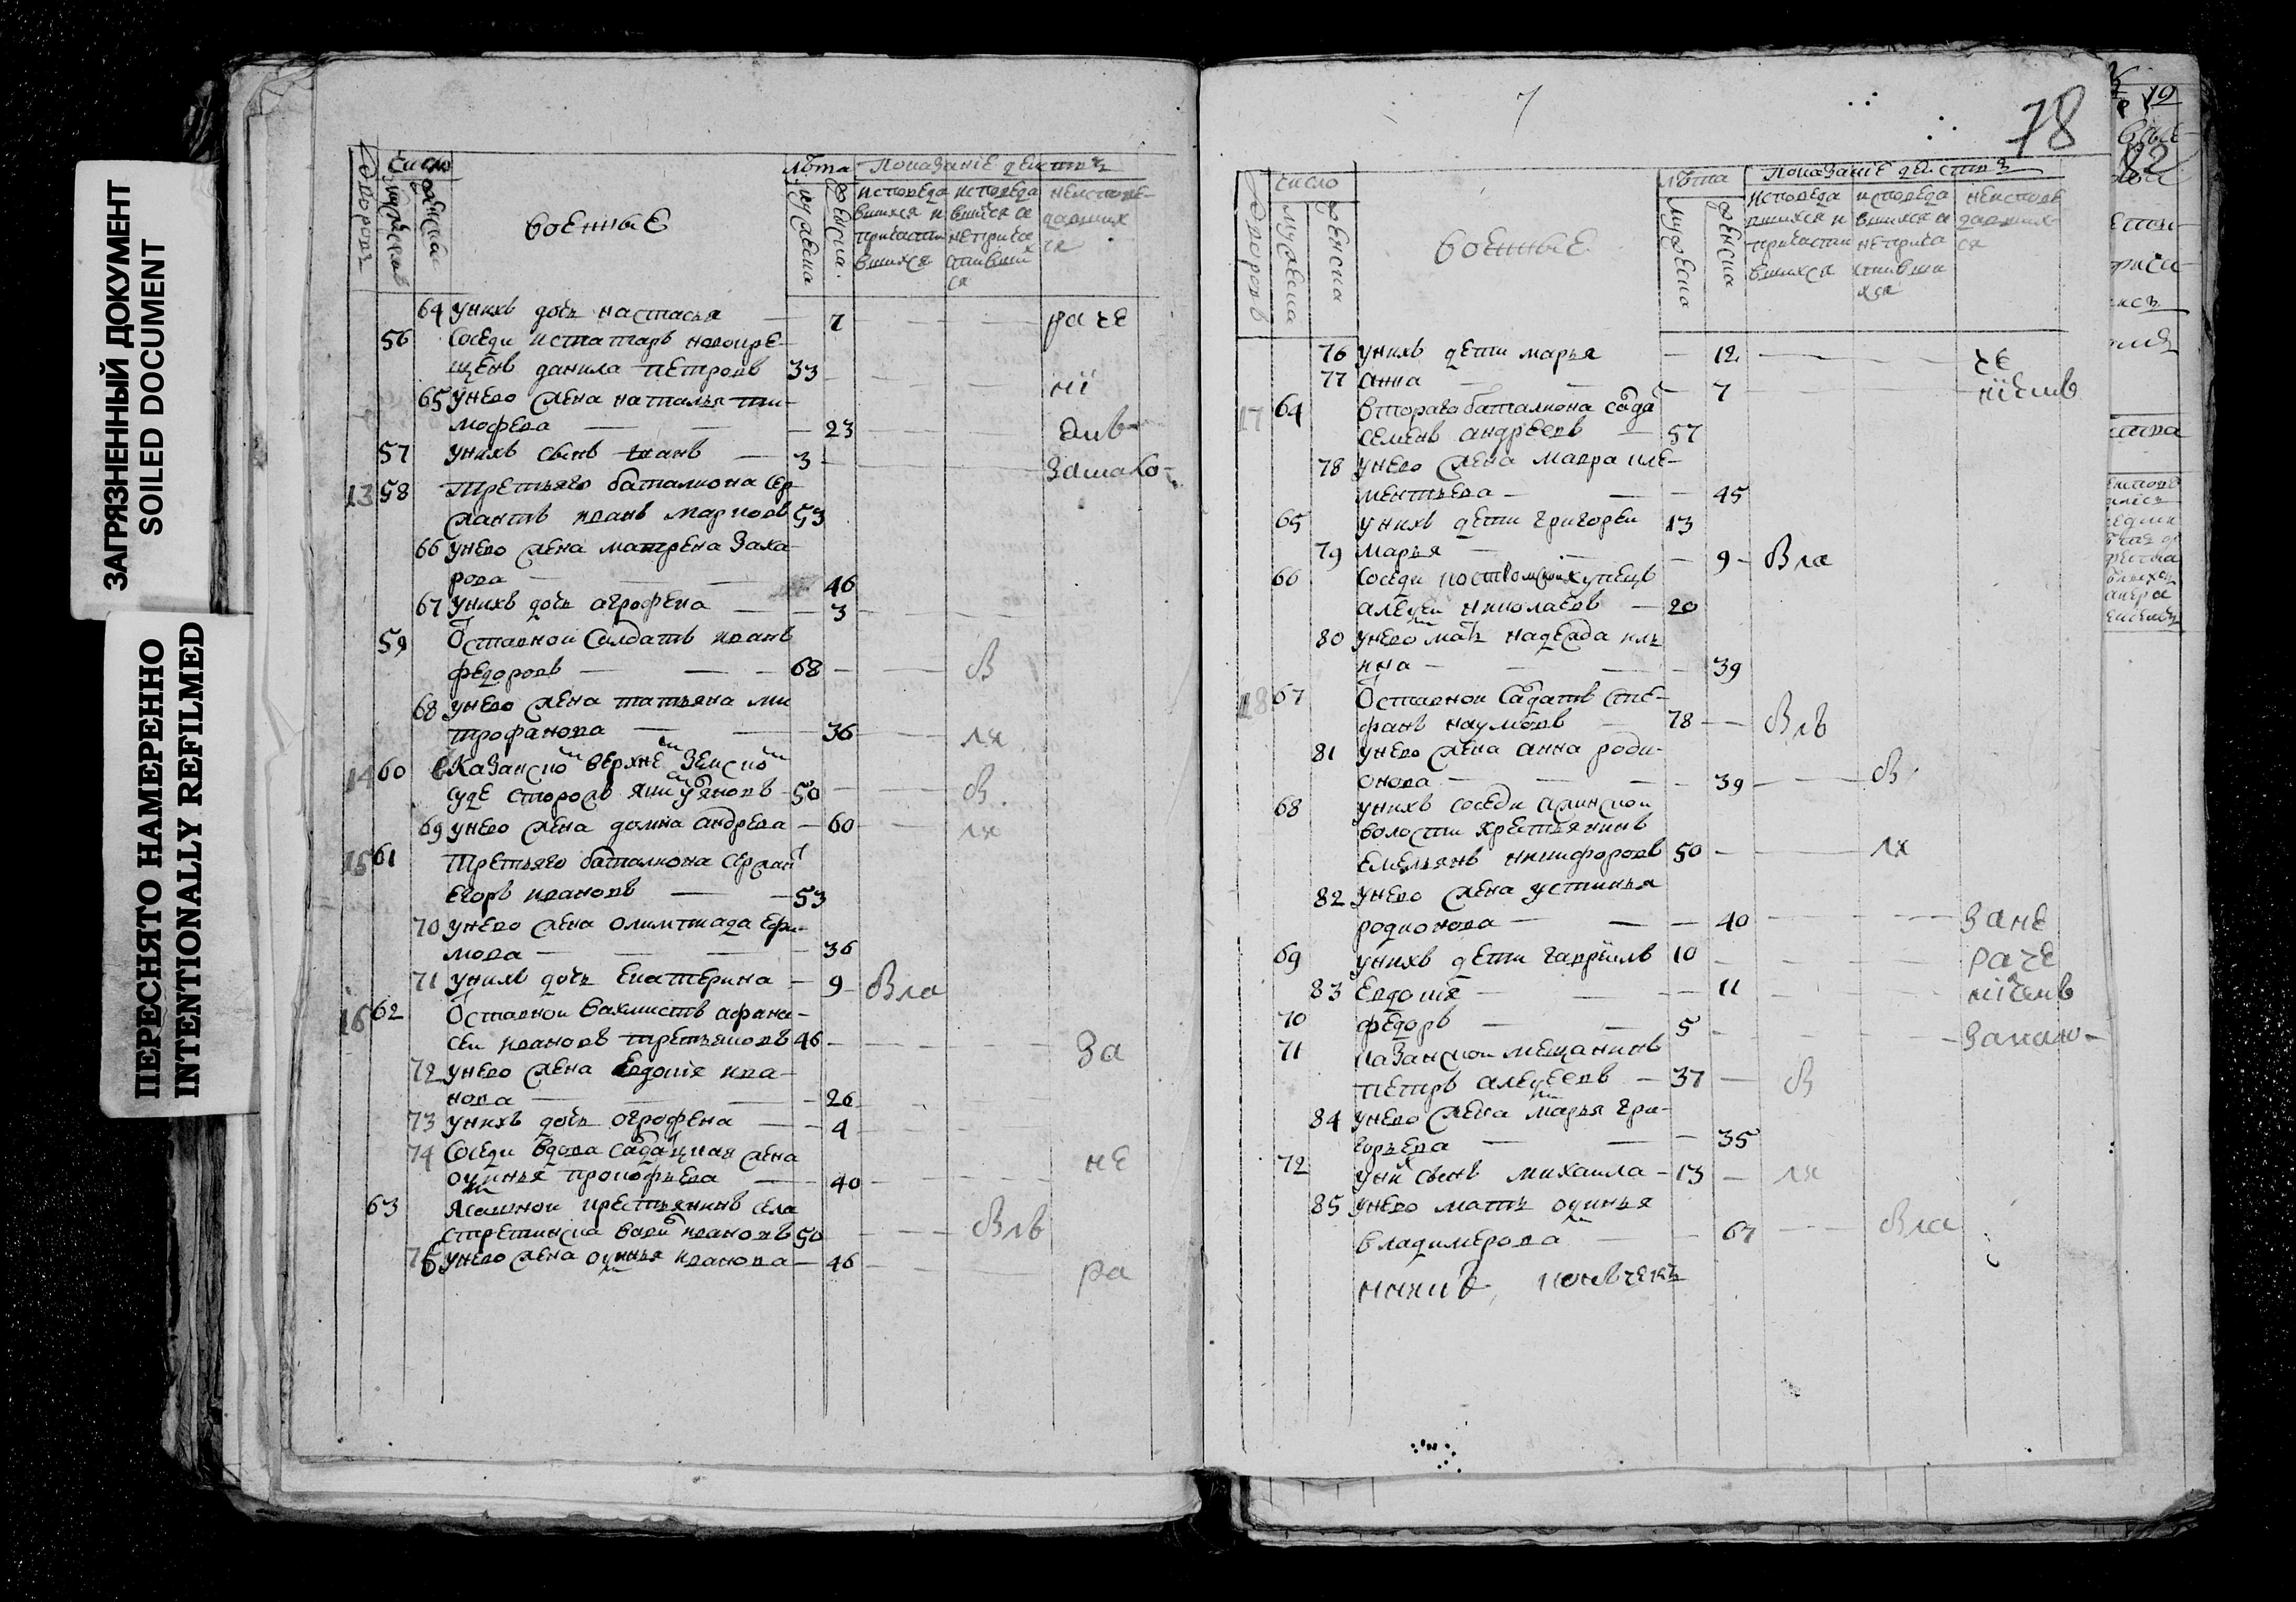 ЗАГРЯЗНЕННЫЙ ДОКУМЕНТ
SOILED DOCUMENT
ПЕРЕСНЯТО НАМЕРЕННО
INTENTIONALLY REFILMED
число
лѣта показанїе действъ
дворовъ
мужеска
женска
военныє
мужеска
женска
исповеда
вшихся и
причасти
вшихся
исповеда
вшихся а
неприча
стивши
ся
неиспове-
давших
ся
64 у нихъ дочь настасья — 7 раче
56 Соседи истатаръ новокре-
щенъ данила петровъ 33 нї
65 у нево жена наталья ти-
мофева — 23
57 у нихъ сынъ иванъ — 3
13 58 Третьяго баталиона сер-
жантъ иванъ марковъ 53
66 у нево жена матрена Заха-
рова — 46
67 у нихъ дочь агрофена — 3
59 Отставной Салдатъ иванъ
федоровъ — 68 в
68 у нево жена татьяна ми
трофанова — 36 лх
14 60 в Казанской верхней Земской
суде сторожъ 50 в
69 у нево жена домна андрева — 60 лх
15 61 Третьяго баталиона сержант
егоръ ивановъ — 53
70 у нево жена олимпиада ефи-
мова — 36
71 у нихъ дочь екатерина — 9 вла
16 62 Отставной вахмистъ афана-
сеи ивановъ третьяковъ 46 За
72 у нево жена евдокїя ива-
нова — 26
73 у нихъ дочь огрофена — 4
74 Соседи вдова салдацкая жена
прокофьева — 40 не
63 Ясашной крестьянинъ села
ивановъ 50 влъ
75 у нево жена иванова — 46 ра
7
78
число
лѣта показанїе действъ
дворовъ
мужеска
женска
военные
мужеска
женска
исповеда
вшихся и
причасти
вшихся
исповеда
вшихся а
неприча
стивши
хся
неиспов
давших
ся
76 у нихъ дети марья — 12 че
77 анна — 7
17 64 втораго баталиона салда
семенъ андреевъ — 57
78 у нево жена мавра кле-
ментьева — 45
65 у нихъ дети григореи 13
79 марья — 9 вла
66 Соседи купецъ
алексеи николаевъ — 20
80 у нево мать надежда иль
ина — 39
18 67 Отставной Салдатъ сте-
фанъ наумовъ — 78 влъ
81 у нево жена анна роди-
онова — 39 в
68 у нихъ соседи
волости крестьянинъ
емельянъ никифоровъ 50 лх
82 у нево жена устинья
родионова — 40 Зане
69 у нихъ дети гаврїилъ 10 раче
83 евдокїя — 11
70 федоръ — 5
71 казанской мещанинъ
петръ алексеевъ — 37 в
84 у нево жена марья гри-
горьева — 35
72 у них сынъ михаила — 13 лх
85 у нево мать
владимерова — 67 вла